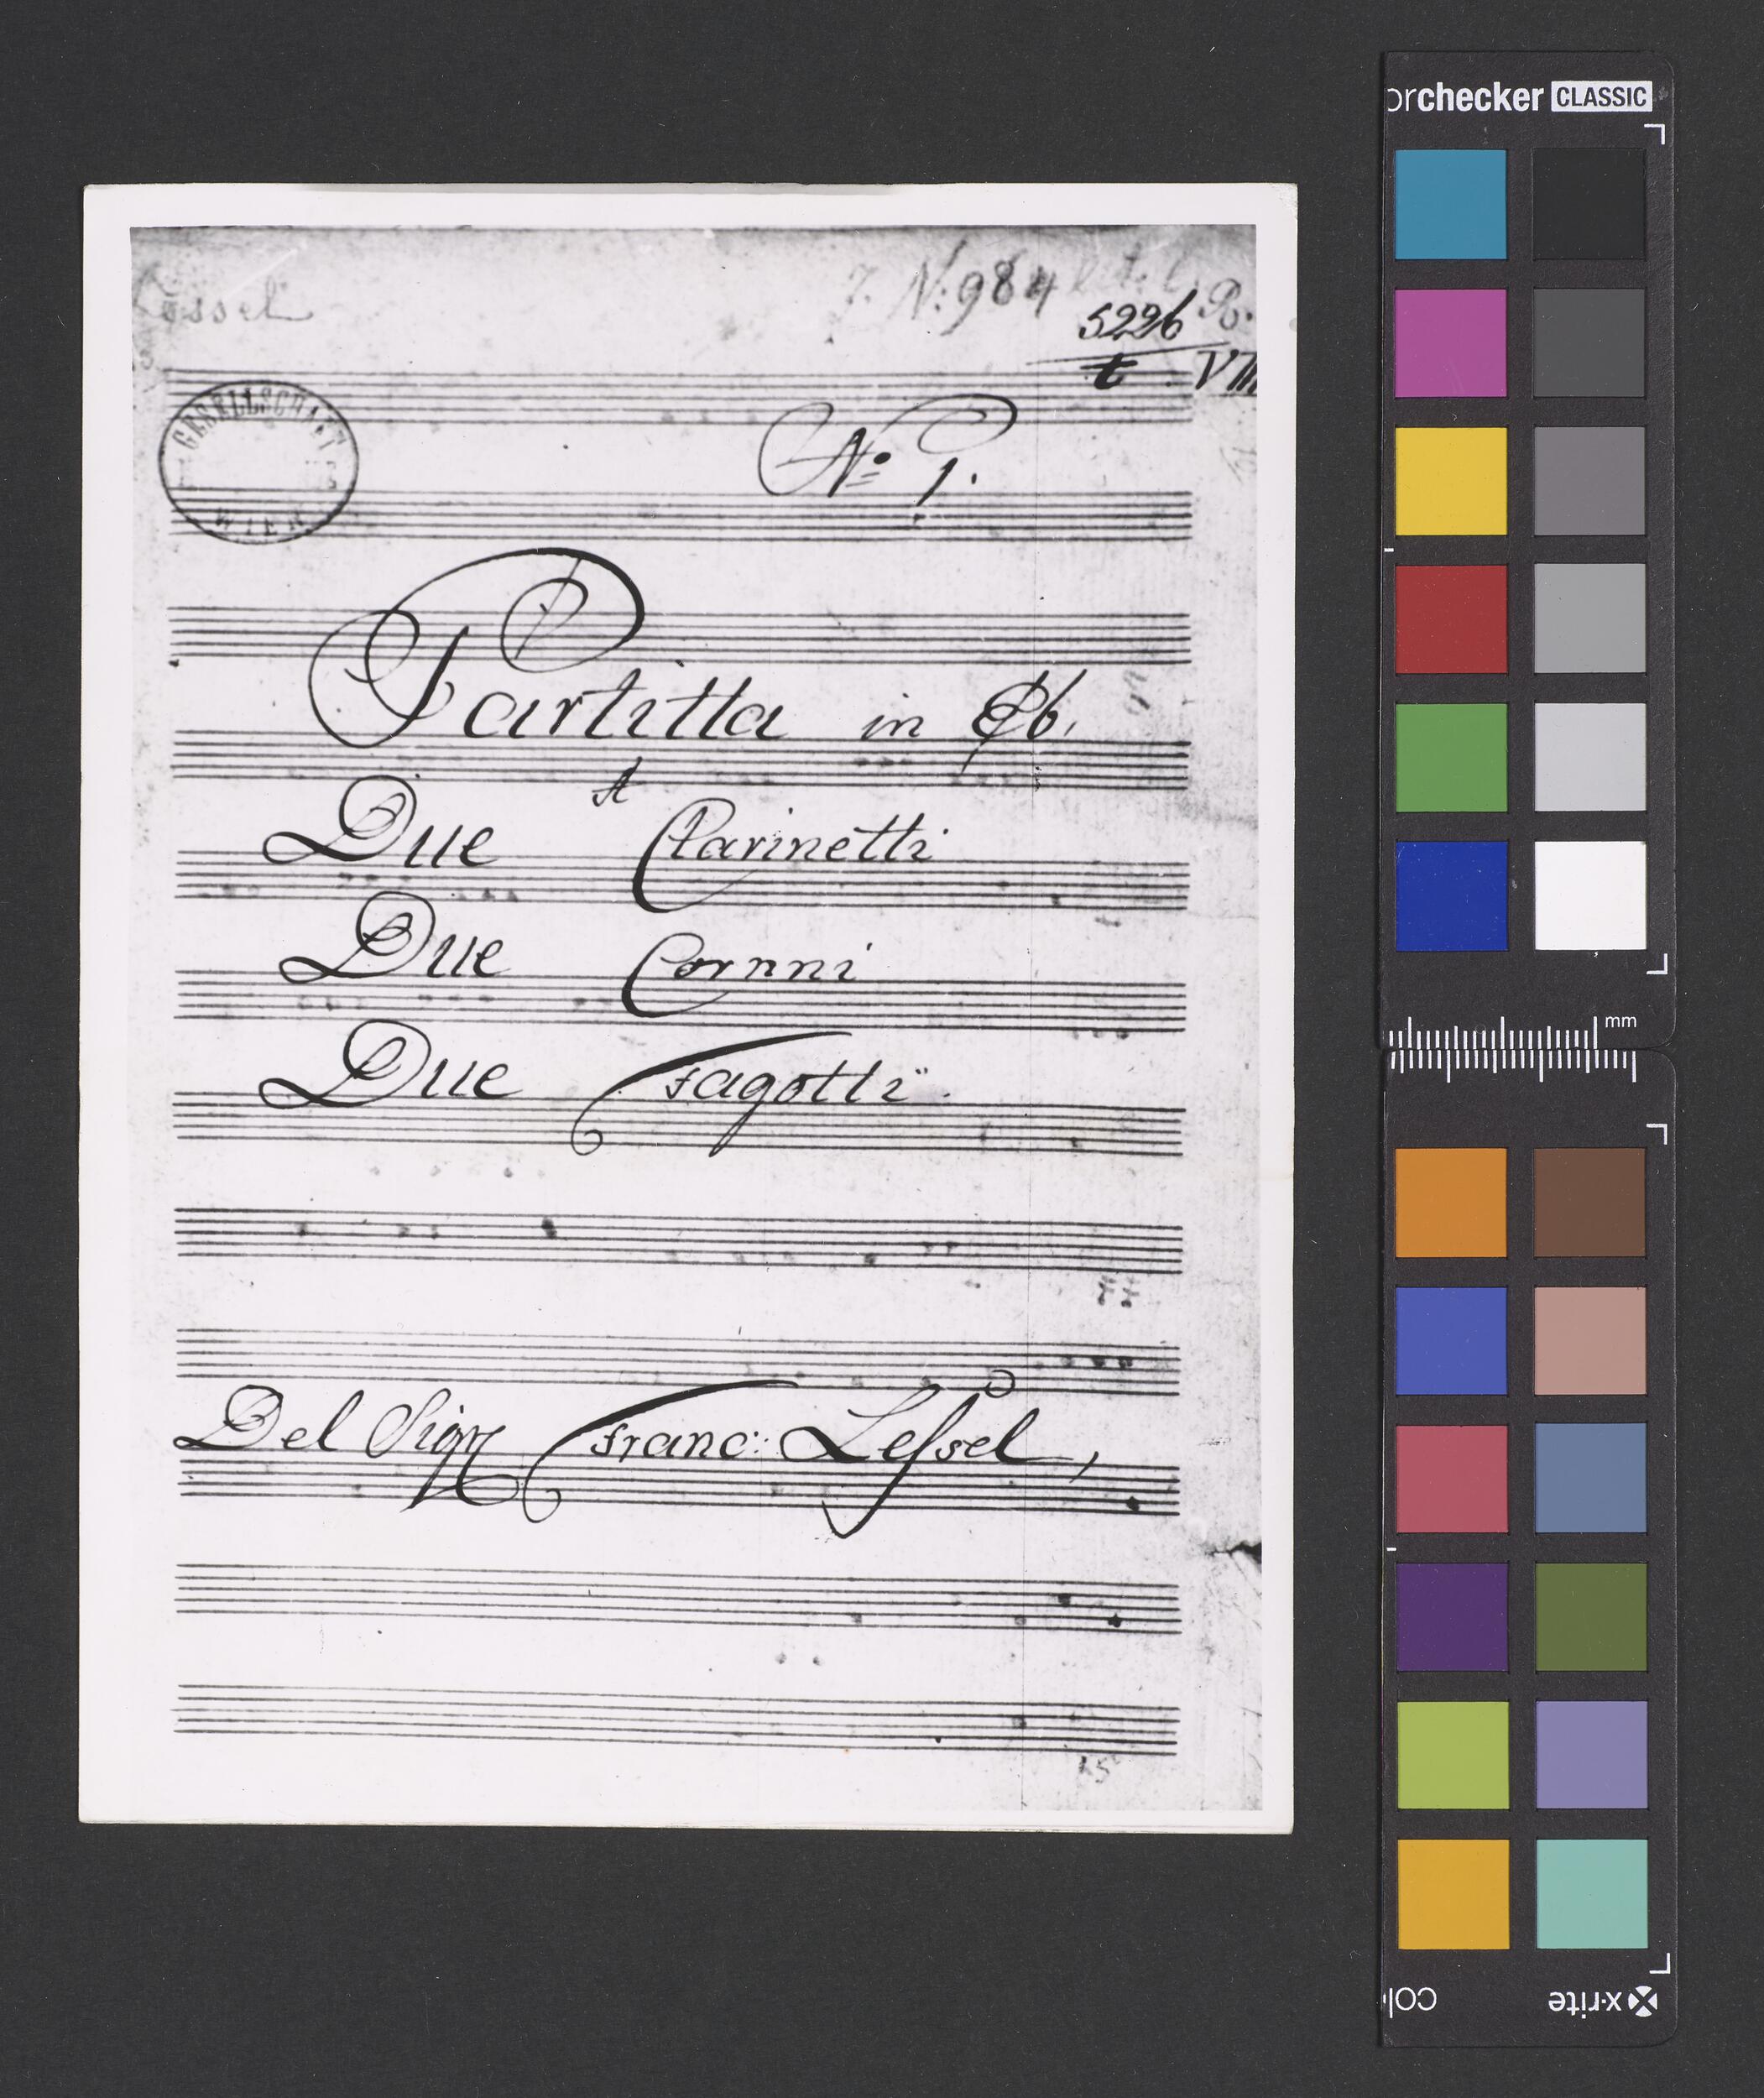 Lessel
7. N: 984
5226
t VIII
GESELLSCHAFT
WIEN
No 1.
Partitta in Eb.
A
Due Clarinetti
Due Cornni
Due Fagotti
Del Sigr Franc: Leſsel,
orchecker CLASSIC
mm
x-rite
col